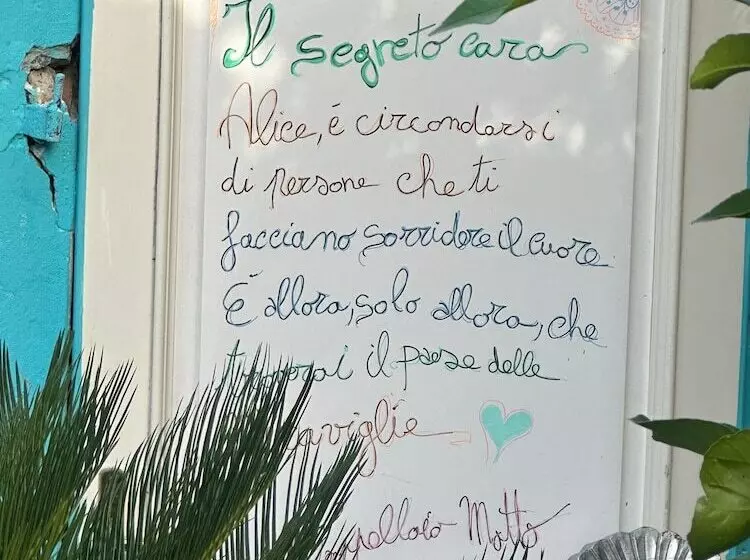 Il segreto cara
Alice, é circondarsi
di persone che ti
facciano sorridere il cuore
É allora, solo allora, che
troverai il paese delle
Meraviglie
Cappellaio Matto